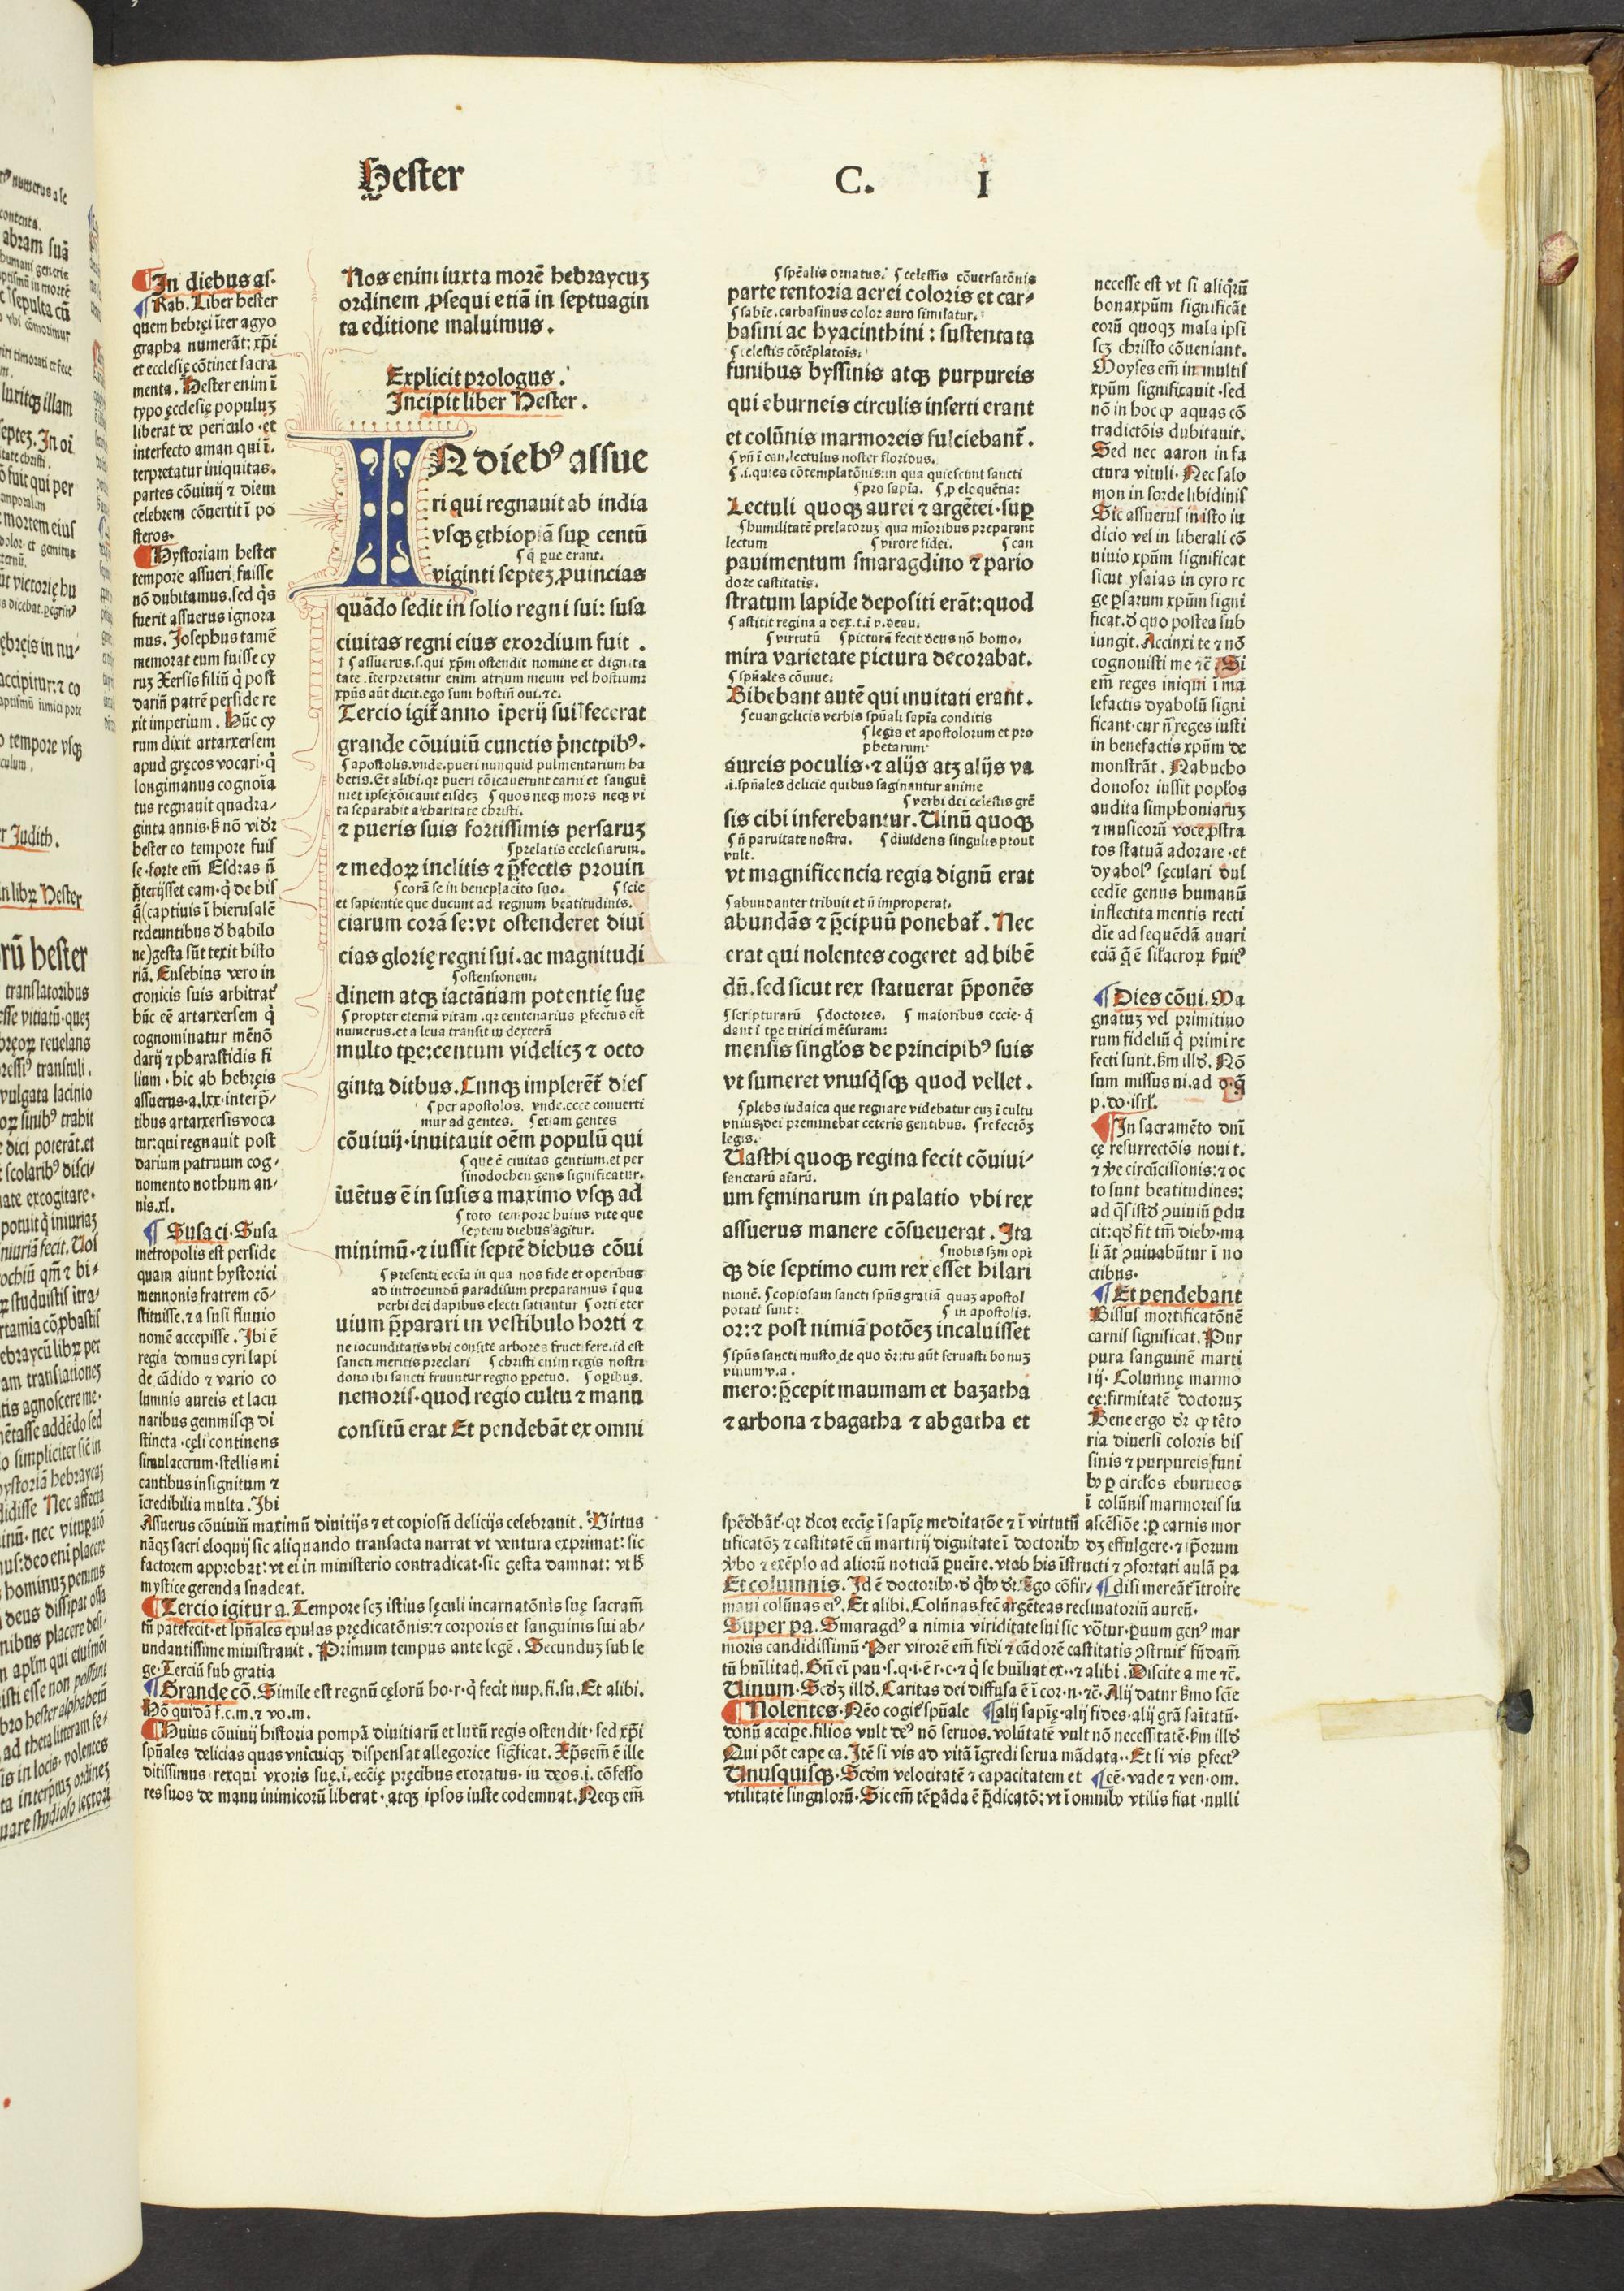 Hester C. I
¶In diebus as.
¶Rab. Liber hester
quem hebręi īter agyo
grapha numerāt: xp̄i
et ecclesię cōtinet sacra
menta. Hester enim ī
typo ęcclesię populuʒ
liberat de periculo ·et
interfecto aman qui ī.
terpretatur iniquitas.
partes cōuiuij ⁊ diem
celebrem cōuertit ī po
steros.
¶Hystoriam hester
tempore assueri fuisse
nō dubitamus.sed q̇s
fuerit assuerus ignora
mus. Josephus tamē
memorat eum fuisse cy
ruʒ Xersis filiū q̇ post
dariū patrē perside re
xit imperium. Hūc cy
rum dixit artarxersem
apud gręcos vocari·q̇
longimanus cognoīa
tus regnauit quadra/
ginta annis.ꝫ nō vidr̄
hester eo tempore fuis
se·forte em̄ Esdras n̄
p̄terijsset eam·q̇ de his
q̄(captiuis ī hierusalē
redeuntibus d̄ babilo
ne)gesta sūt texit histo
riā. Eusebius vero in
cronicis suis arbitrat᷑
hūc eē artarxersem q̇
cognominatur mēnō
darij ⁊ pharastidis fi
lium·hic ab hebręis
assuerus·a.lxx·interp̄/
tibus artarxersis voca
tur:qui regnauit post
darium patruum cog/
nomento nothum an/
nis.xl.
¶ Susa ci·Susa
metropolis est perside
quam aiunt hystorici
mennonis fratrem cō/
stituisse.⁊ a susi fluuio
nomē accepisse. Ibi ē
regia domus cyri lapi
de cādido ⁊ vario co
lumnis aureis et lacu
naribus gemmisqꝫ di
stincta·cęli continens
simulacrum·stellis mi
cantibus insignitum ⁊
īcredibilia multa. Ibi
Nos enim iuxta morē hebraycuʒ
ordinem ꝓsequi etiā in septuagin
ta editione maluimus.
Explicit prologus.
Incipit liber Hester.
IN diebꝰ assue
ri qui regnauit ab india
vsqꝫ ęthiopiā suꝑ centū
ʃ q̇ ꝑue erant.
viginti septeʒ ꝓuincias
quādo sedit in solio regni sui: susa
ciuitas regni eius exordium fuit .
† ʃ assuerus.s.qui xp̄m ostendit nomine et dignita
tate .īterpretatur enim atrium meum vel hostium:
xpūs aūt dicit.ego sum hostiū oui.⁊c.
Tercio igit᷑ anno īperij sui†fecerat
grande cōuiuiū cunctis p̄nctpibꝰ.
ʃ apostolis.vnde.pueri nunquid pulmentarium ha
betis.Et alibi.qꝛ pueri cōicauerunt carni et sangui
ni et ipse cōicauit eisdeʒ ʃ quos neqꝫ mors neqꝫ vi
ta separabit a charitate christi.
⁊ pueris suis fortissimis persaruʒ
ʃ prelatis ecclesiarum.
⁊ medoꝝ inclitis ⁊ p̄fectis prouin
ʃ corā se in beneplacito suo. ʃ scie
et sapientie que ducunt ad regnum beatitudinis.
ciarum corā se:vt ostenderet diui
cias glorię regni sui.ac magnitudi
ʃ ostensionem.
dinem atqꝫ iactātiam potentię suę
ʃ propter eternā vitam .qꝛ centenarius ꝑfectus est
numerus.et a leua transit in dexterā
multo tp̄e:centum videlicʒ ⁊ octo
ginta ditbus. Cunqꝫ implerēt᷑ dies
ʃ per apostolos. vnde.ecce conuerti
mur ad gentes. ʃ etiam gentes
cōuiuij·inuitauit oēm populū qui
ʃ que ē ciuitas gentium.et per
sinodochen gens significatur.
īuētus ē in susis a maximo vsqꝫ ad
ʃ toto tempore huius vite que
septem diebus agitur.
minimū·⁊ iussit septē diebus cōui
ʃ presenti eccīa in qua nos fide et operibus
ad introeundū paradisum preparamus ī qua
verbi dei dapibus electi satiantur ʃ orti eter
uium p̄parari in vestibulo horti ⁊
ne iocunditatis vbi consite arbores fructifere.id est
sancti meritis preclari ʃ christi enim regis nostri
dono ibi sancti fruuntur regno ꝑpetuo. ʃ oꝑibus.
nemoris·quod regio cultu ⁊ manu
consitū erat Et pendebāt ex omni
ʃ spēalis ornatus. ʃ celestis cōuersatōnis
parte tentoria aerei coloris et car/
ʃ sabic.carbasinus color auro similatur.
basini ac hyacinthini : sustentata
ʃ celestis cōtēplatōis.
funibus byssinis atqꝫ purpureis
qui eburneis circulis inserti erant
et colūnis marmoreis fulciebant᷑.
ʃ vn̄ ī can.lectulus noster floridus.
ʃ .i.quies cōtemplatōnis:in qua quiescunt sancti
ʃ pro sapīa. ʃ ꝓ eloquētia:
Lectuli quoqꝫ aurei ⁊ argētei·suꝑ
ʃ humilitatē prelatoruʒ qua mīoribus preparant
lectum ʃ virore fidei. ʃ can
pauimentum smaragdino ⁊ pario
dore castitatis.
stratum lapide depositi erāt:quod
ʃ astitit regina a dex.t.i v.deau.
ʃ virtutū ʃ picturā fecit deus nō homo.
mira varietate pictura decorabat.
ʃ spūales cōuiue.
Bibebant autē qui inuitati erant.
ʃ euangelicis verbis spūali sapīa conditis
ʃ legis et apostolorum et pro
phetarum
aureis poculis·⁊ alijs atʒ alijs va
.i.spūales delicie quibus saginantur anime
ʃ verbi dei celestis grē
sis cibi inferebantur. Uinū quoqꝫ
ʃ n̄ paruitate nostra. ʃ diuidens singulis prout
vult.
vt magnificencia regia dignū erat
ʃ abundanter tribuit et n̄ improperat.
abundās ⁊ p̄cipuū ponebat᷑. Nec
erat qui nolentes cogeret ad bibē
dū.sed sicut rex statuerat p̄ponēs
ʃ scripturarū ʃ doctores. ʃ maioribus eccīe·q̇
dant ī tp̄e tritici mēsuram:
mensis singłos de principibꝰ suis
vt sumeret vnusq̇sqꝫ quod vellet.
ʃ plebs iudaica que regnare videbatur cuʒ ī cultu
vnius dei preminebat ceteris gentibus. ʃ refectōʒ
legis.
Uasthi quoqꝫ regina fecit cōuiui/
sanctarū aīarū.
um fęminarum in palatio vbi rex
assuerus manere cōsueuerat. Ita
ʃ nobis scm opi
qꝫ die septimo cum rex esset hilari
nionē. ʃ copiosam sancti spūs gratiā quaʒ apostol
potati sunt: ʃ in apostolis.
or:⁊ post nimiā potōeʒ incaluisset
ʃ spūs sancti musto de quo dr̄:tu aūt seruasti bonuʒ
vinum.v.a.
mero:p̄cepit maumam et baʒatha
⁊ arbona ⁊ bagatha ⁊ abgatha et
necesse est vt si aliq̇rū
bona xpūm significāt
eorū quoqꝫ mala ipsi
scʒ christo cōueniant.
Moyses em̄ in multis
xpūm significauit·sed
nō in hoc ꝙ aquas cō
tradictōis dubitauit.
Sed nec aaron in fa
ctura vituli. Nec salo
mon in sorde libidinis
Sic assuerus in isto iu
dicio vel in liberali cō
uiuio xpūm significat
sicut ysaias in cyro re
ge ꝑsarum xpūm signi
ficat.d̄ quo postea sub
iungit. Accinxi te ⁊ nō
cognouisti me ⁊c̄. Si
em̄ reges iniqui ī ma
lefactis dyabolū signi
ficant·cur n̄ reges iusti
in benefactis xpūm de
monstrāt. Nabucho
donosor iussit popłos
audita simphoniaruʒ
⁊ musicorū voce ꝓstra
tos statuā adorare·et
dyabolꝰ sęculari dul
cedīe genus humanū
inflectit a mentis recti
dīe ad sequēdā auari
¶Dies cōui. Ma
gnatuʒ vel primitiuo
rum fideliū q̇ primi re
fecti sunt.ꝫm illd̄. Nō
sum missus ni.ad o.q̄
p.do.isrł.
¶In sacramēto dn̄i
cę resurrectōis noui t.
to sunt beatitudines:
ctibus.
¶Et pendebant
Bissus mortificatōnē
carnis significat. Pur
pura sanguinē marti
rij. Columnę marmo
eę:firmitatē doctoruʒ
Bene ergo dr̄ ꝙ tēto
ria diuersi coloris bis
sinis ⁊ purpureis funi
bꝫ ꝑ circłos eburneos
ī colūnis marmoreis su
Assuerus cōuiuiū maximū diuitijs ⁊ et copiosū delicijs celebrauit. Virtus
nāqꝫ sacri eloquij sic aliquando transacta narrat vt ventura exprimat: sic
factorem approbat: vt ei in ministerio contradicat·sic gesta damnat: vt h̄
mystice gerenda suadeat.
¶Tercio igitur a. Tempore scʒ istius sęculi incarnatōnis suę sacram̄
tū patefecit·et spūales epulas prędicatōnis:⁊ corporis et sanguinis sui ab/
undantissime ministrauit. Primum tempus ante legē. Secunduʒ sub le
ge·Terciū sub gratia
¶Grande cō. Simile est regnū cęlorū ho.r.q̇ fecit nup.fi.su. Et alibi.
Hō quidā f.c.m.⁊ vo.m.
¶Huius cōuiuij historia pompā diuitiarū et luxū regis ostendit·sed xp̄i
spūales delicias quas vnicuiqꝫ dispensat allegorice sig̅ficat. Xp̄s em̄ ē ille
ditissimus·rex qui vxoris suę.i.eccīę pręcibus exoratus·iudęos.i.cōfesso
res suos de manu inimicorū liberat·atqꝫ ipsos iuste condemnat. Neqꝫ em̄
spēdbāt᷑·qꝛ dcor eccīę ī sapīę meditatōe ⁊ ī virtutū ascēsiōe:ꝑ carnis mor
tificatōʒ ⁊ castitatē cū martirij dignitate ī doctoribꝫ dʒ effulgere·⁊ ip̄orum
v̄bo ⁊ exēplo ad aliorū noticiā ꝑueīre.vt ab his īstructi ⁊ ꝯfortati aulā pa
Et columnis. Id ē doctoribꝫ.d̄ q̇bꝫ dr̄. Ego cōfir/ ¶disi mereāt᷑ ītroire
maui colūnas eiꝰ. Et alibi. Colūnas fec̄ argēteas reclinatoriū aureū.
Super pa. Smaragdꝰ a nimia viriditate sui sic vōtur·ꝑuum genꝰ mar
moris candidissimū·Per virorē em̄ fidei ⁊ cādorē castitatis ꝯstruit᷑ fūdam̄
Uinum. Scdʒ illd̄. Caritas dei diffusa ē ī cor.n.⁊c̄. Alij datur ꝫmo scīe
¶Nolentes. Nēo cogit᷑ spūale ¶alij sapīę·alij fides·alij grā saītatū.
donū accipe.filios vult deꝰ nō seruos.volūtatē vult nō necessitatē.ꝫm illd̄
Qui pōt cape ca. Itē si vis ad vitā īgredi serua mādata. Et si vis ꝑfectꝰ
Unusquisqꝫ. Scdm velocitatē ⁊ capacitatem et ¶eē·vade ⁊ ven·om.
vtilitatē singulorū·Sic em̄ tēꝑāda ē p̄dicatō:vt ī omnibꝫ vtilis fiat·nulli